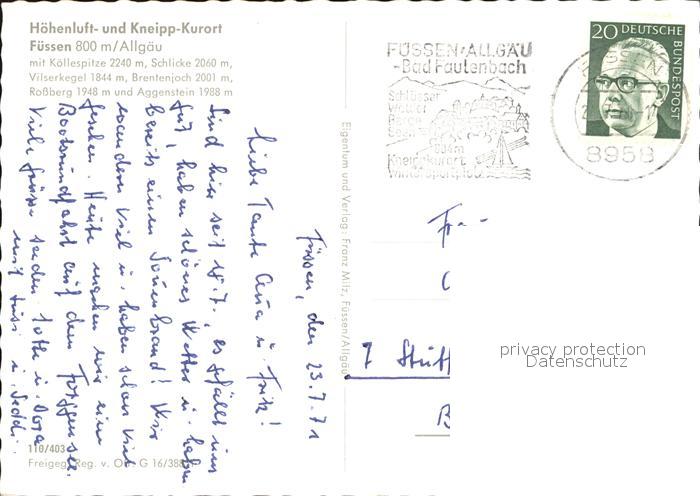 Höhenluft- und Kneipp-Kurort
Füssen 800 m/Allgäu
mit Köllespitze 2240 m, Schlicke 2060 m,
Vilserkegel 1844 m, Brentenjoch 2001 m,
Roßberg 1948 m und Aggenstein 1988 m
Füssen, den 23.7.71
Liebe Tante Anna u. Fritz!
Sind hier seit 18.7., es gefällt uns
gut, haben schönes Wetter u. haben
bereits einen Sonnenbrand! Wir
wandern viel u. haben schon viel
gesehen. Heute machen wir eine
Bootsrundfahrt auf dem Forggensee.
Viele Grüsse senden
mit
110/403
Freigeg. Reg. v. Ob. G 16/38
Eigentum und Verlag: Franz Milz, Füssen/Allgäu
FÜSSEN/ALLGÄU
-Bad Faulenbach
Schlösser
Wälder
Berge
Seen
Kneippkurort
Wintersportplatz
20 DEUTSCHE
BUNDESPOST
FÜSSEN
8958
7
privacy protection
Datenschutz